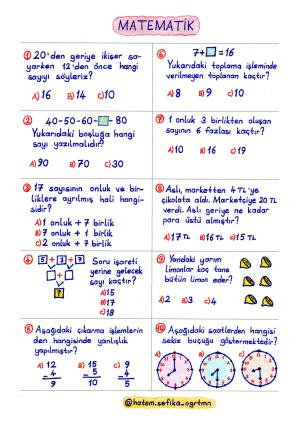 MATEMATİK
① 20'den geriye ikişer sa-
yarken 12'den önce hangi
sayıyı söyleriz?
A) 16 B) 14 C) 10
② 40-50-60-□-80
Yukarıdaki boşluğa hangi
sayı yazılmalıdır?
A) 90 B) 70 C) 30
③ 17 sayısının onluk ve bir-
liklere ayrılmış hali hangi-
sidir?
A) 1 onluk + 7 birlik
B) 7 onluk + 1 birlik
C) 2 onluk + 7 birlik
④ 5 + 3 + 7
□ + □
?
Soru işareti
yerine gelecek
sayı kaçtır?
A) 15
B) 17
C) 18
⑤ Aşağıdaki çıkarma işlemlerin-
den hangisinde yanlışlık
yapılmıştır?
A) 12 B) 15 C) 9
- 4 5 - 4
9 10 5
⑥ 7+□=16
Yukarıdaki toplama işleminde
verilmeyen toplanan kaçtır?
A) 8 B) 9 C) 10
⑦ 1 onluk 3 birlikten oluşan
sayının 6 fazlası kaçtır?
A) 10 B) 16 C) 19
⑧ Aslı, marketten 4 TL'ye
çikolata aldı. Marketçiye 20 TL
verdi. Aslı geriye ne kadar
para üstü almıştır?
A) 17 TL B) 16 TL C) 15 TL
⑨ Yandaki yarım
limonlar kaç tane
bütün limon eder?
A) 2 B) 3 C) 4
⑩ Aşağıdaki saatlerden hangisi
sekiz buçuğu göstermektedir?
A) B) C)
@hatem.sefika_ogrtmn